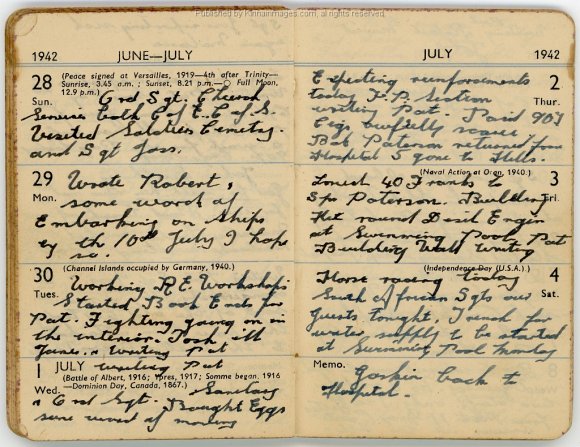 Published by Kinnainimages.com, all rights reserved.
1942 JUNE—JULY
28 (Peace signed at Versailles, 1919—4th after Trinity—
Sun. Sunrise, 3.45 a.m. ; Sunset, 8.21 p.m.—○ Full Moon,
12.9 p.m.) Ord Sgt. Church
Services both C of E. C of S.
Visited Soldiers Cemetry.
and Sgt Joss.
29 Wrote Robert,
Mon. some word of
Embarking on ships
by the 10th July I hope
so.
30 (Channel Islands occupied by Germany, 1940.)
Tues. Working R.E. Workshops
Started Book Ends for
Pat. Fighting going on in
the interior. Took ill
Writing Pat
1 JULY writing Pat
(Battle of Albert, 1916; Ypres, 1917; Somme began, 1916
Wed. —Dominion Day, Canada, 1867.) Sanitary
& Ord Sgt. Bought Eggs
some word of moving
JULY 1942
2 Expecting reinforcements
Thur. today F.P. Section
writing Pat. Paid 90f
Eggs awfully scarce,
Bob Paterson returned from
Hospital & gone to Hills.
3 (Naval Action at Oran, 1940.)
Fri. Loused 40 Franks to
Sp. Paterson. Building
Hut round Diesel Engin
at Swimming Pool. Pat
Building Wall Writing
4 (Independence Day (U.S.A.).)
Sat. Horse racing today
South African Sgts our
guests tonight, Trench for
water supply to be started
at Swimming Pool Monday
Memo. back to
Hospital.